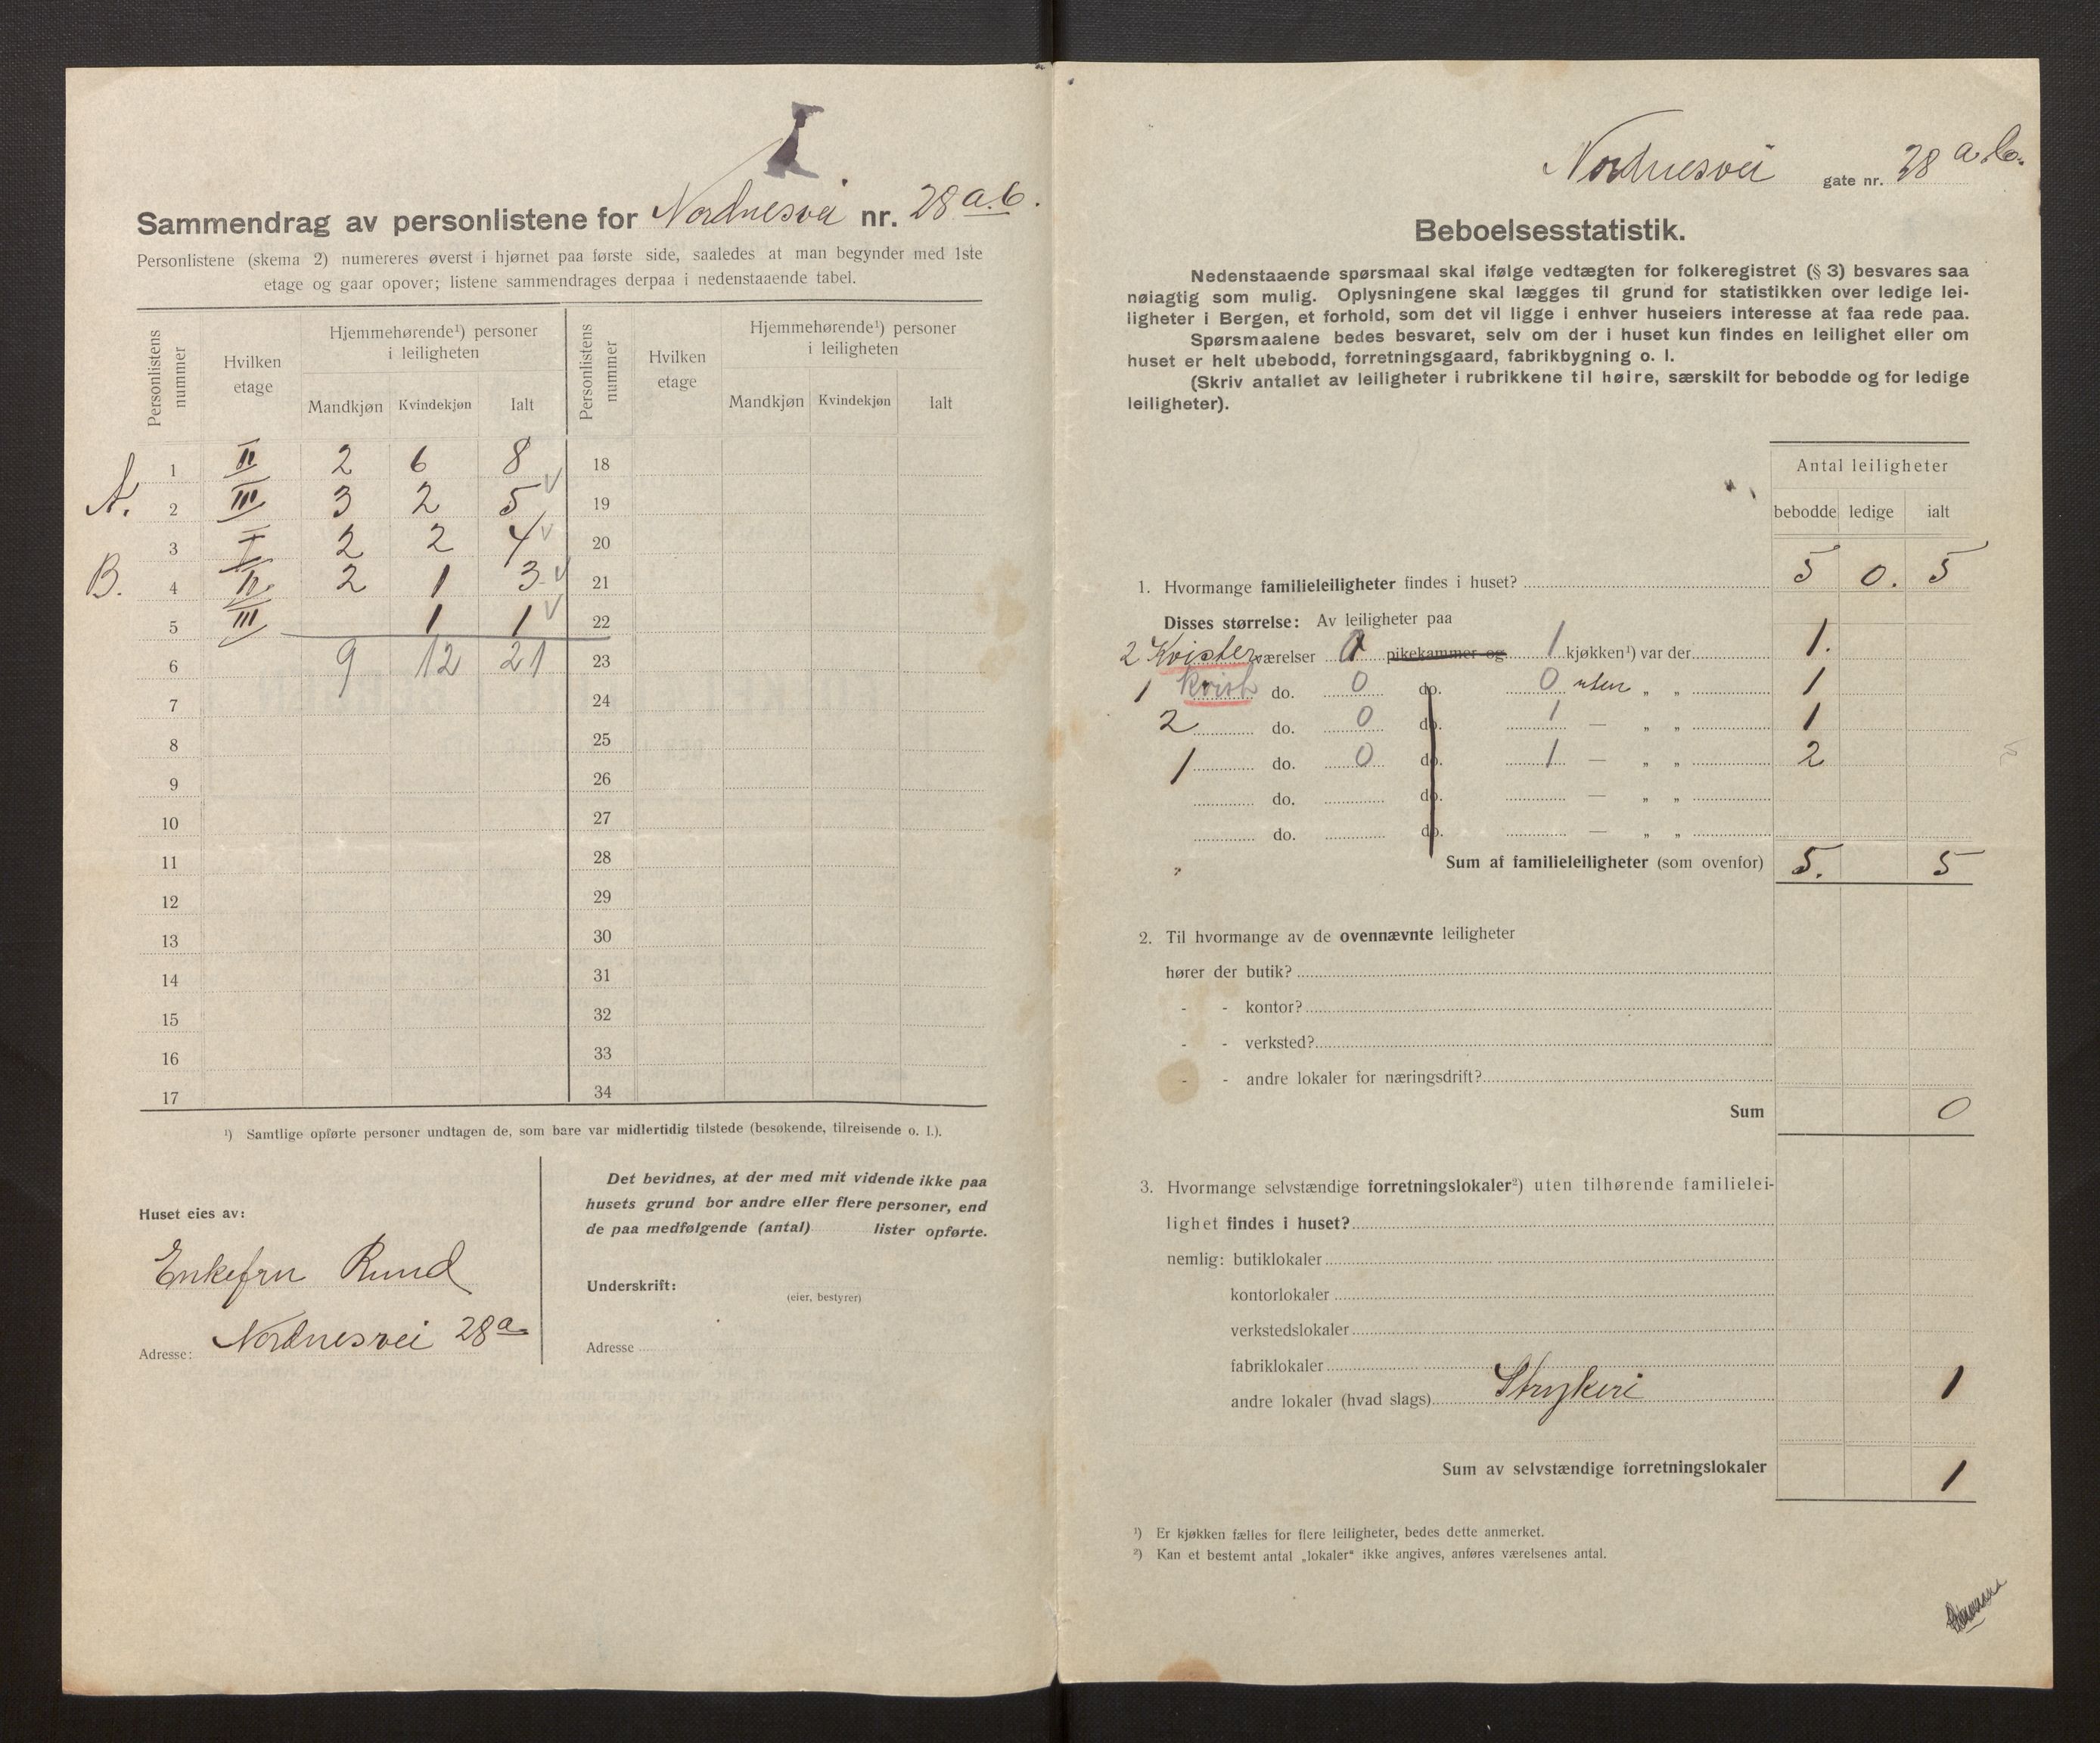 I
Sammendrag av personlistene for Nordnesvei nr. 28 a.b.
Personlistene (skema 2) numereres øverst i hjørnet paa første side, saaledes at man begynder med 1ste
etage og gaar opover; listene sammendrages derpaa i nedenstaaende tabel.
Personlistens nummer Hvilken etage Hjemmehørende¹) personer i leiligheten Personlistens nummer Hvilken etage Hjemmehørende¹) personer i leiligheten
Mandkjøn Kvindekjøn Ialt Mandkjøn Kvindekjøn Ialt
1 II 2 6 8 18
A. 2 III 3 2 5 19
3 I 2 2 4 20
B. 4 II 2 1 3 21
5 III 1 1 22
6 9 12 21 23
7 24
8 25
9 26
10 27
11 28
12 29
13 30
14 31
15 32
16 33
17 34
¹) Samtlige opførte personer undtagen de, som bare var midlertidig tilstede (besøkende, tilreisende o. l.).
Huset eies av:
Enkefru Rund
Adresse: Nordnesvei 28a
Det bevidnes, at der med mit vidende ikke paa
husets grund bor andre eller flere personer, end
de paa medfølgende (antal) lister opførte.
Underskrift:
(eier, bestyrer)
Adresse
Nordnesvei gate nr. 28 a b.
Beboelsesstatistik.
Nedenstaaende spørsmaal skal ifølge vedtægten for folkeregistret (§ 3) besvares saa
nøiagtig som mulig. Oplysningene skal lægges til grund for statistikken over ledige lei-
ligheter i Bergen, et forhold, som det vil ligge i enhver huseiers interesse at faa rede paa.
Spørsmaalene bedes besvaret, selv om der i huset kun findes en leilighet eller om
huset er helt ubebodd, forretningsgaard, fabrikbygning o. l.
(Skriv antallet av leiligheter i rubrikkene til høire, særskilt for bebodde og for ledige
leiligheter).
Antal leiligheter
bebodde ledige ialt
1. Hvormange familieleiligheter findes i huset? 5 0. 5
Disses størrelse: Av leiligheter paa
2 Kvister værelser 0 pikekammer og 1 kjøkken¹) var der 1.
1 Kvist do. 0 do. 0 uten „ „ 1
2 do. 0 do. 1 — „ „ 1
1 do. 0 do. 1 — „ „ 2
do. do. — „ „
do. do. — „ „
Sum af familieleiligheter (som ovenfor) 5. 5
2. Til hvormange av de ovennævnte leiligheter
hører der butik?
- - kontor?
- - verksted?
- - andre lokaler for næringsdrift?
Sum 0
3. Hvormange selvstændige forretningslokaler²) uten tilhørende familielei-
lighet findes i huset?
nemlig: butiklokaler
kontorlokaler
verkstedslokaler
fabriklokaler
andre lokaler (hvad slags) Strykeri 1
Sum av selvstændige forretningslokaler 1
¹) Er kjøkken fælles for flere leiligheter, bedes dette anmerket.
²) Kan et bestemt antal „lokaler“ ikke angives, anføres værelsenes antal.